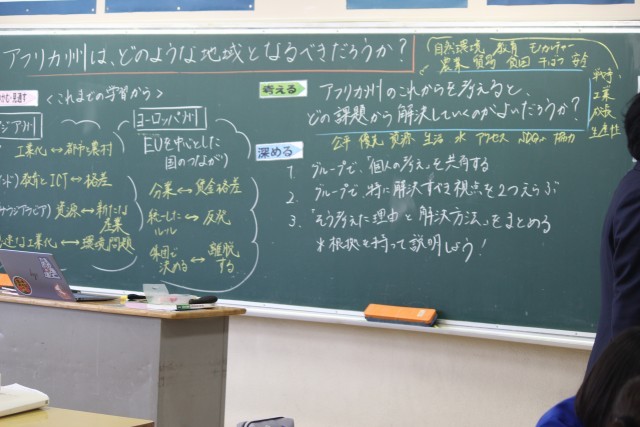 アフリカ州は、どのような地域となるべきだろうか?
自然環境 教育 モノカルチャー
農業 貿易 貧困 干ばつ 安全
戦争
工業
政策
生産性
見通す
<これまでの学習から>
考える
アフリカ州のこれからを考えると、
どの課題から解決していくのがよいだろうか?
公平 優先 資源 生活 水 アクセス 協力
ジア州
工業化↔都市と農村
ンド) 教育とICT↔格差
サウジアラビア) 資源↔新たな
産業
工業化↔環境問題
ヨーロッパ州
EUを中心とした
国のつながり
分業↔賃金格差
統一した
ルール↔反発
集団で
決める↔離脱
する
深める
1. グループで、「個人の考え」を共有する
2. グループで、特に解決すべき視点を2つえらぶ
3. 「そう考えた理由と解決方法」をまとめる
※根拠を持って説明しよう!